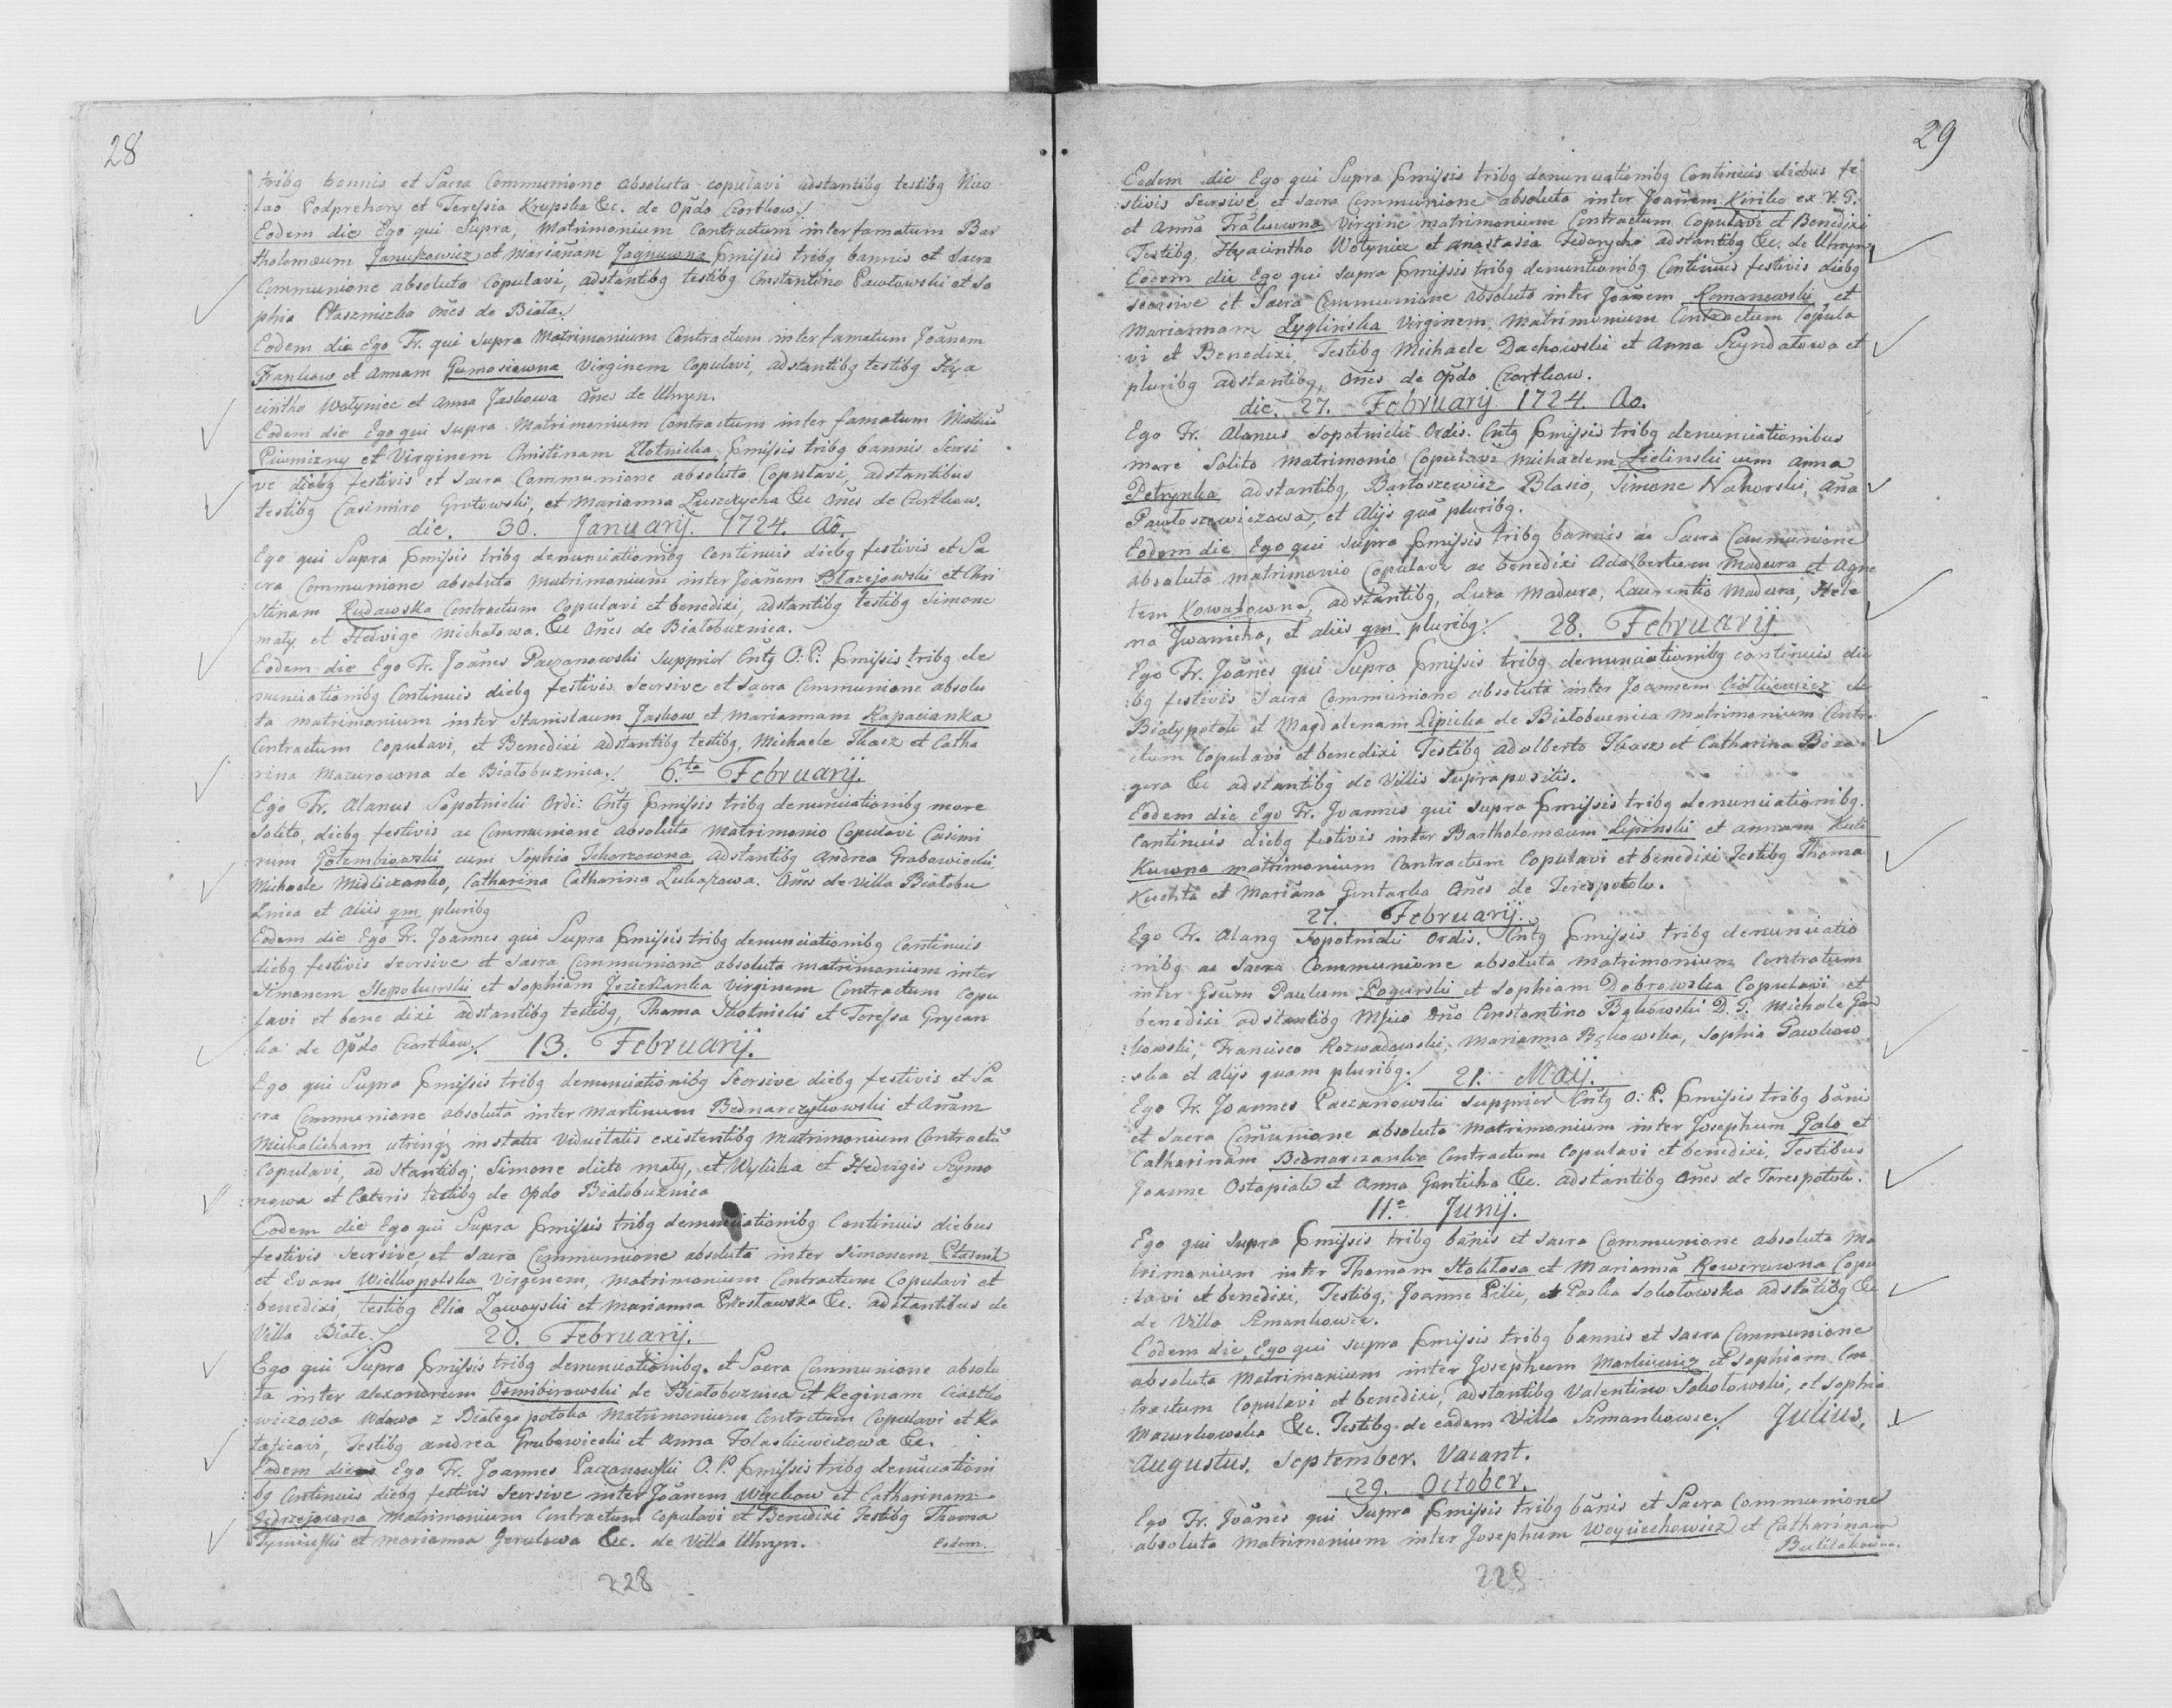 28
tribq bannis et Sacra Communione absoluta copulavi adstantibq testibq Nico
lao Podprehory et Teressia Krupska &c. de Opdo Czortkow./
Eodem die Ego qui Supra, Matrimonium Contractum inter famatum Bar
tholomæum Januszowicz et Mariañam Jagnuwna pmissis tribq bannis et Sacra
Communione absoluta Copulavi, adstantibq testibq Constantino Pawłowski et So
phia Ptaszniczka oñes de Biała./
Eodem die Ego Fr. qui Supra Matrimonium Contractum inter famatum Joãnem
Frankow et Annam Gumosiowna Virginem Copulavi, adstantibq testibq Hya
cintho Wołyniec et Anna Jaskowa Oñes de Uhryn.
Eodem die Ego qui Supra Matrimonium Contractum inter famatum Mathiã
Piwnizny et Virginem Christinam Złotnicka pmissis tribq bannis Seorsi
ve diebq festivis et Sacra Communione absoluta Copulavi, adstantibus
testibq Casimiro Grotowski, et Marianna Luszczycha &c Oñes de Czortkow.
die. 30. Januarij. 1724. Aõ.
Ego qui Supra pmissis tribq denunciationibq Continuis diebq festivis et Sa
cra Communione absoluta Matrimonium inter Joañem Błazejowski et Chri
stinam Rudawska Contractum Copulavi et benedixi, adstantibq testibq Simone
mały et Hedvige Michałowa. &c Oñes de Białobuznica.
Eodem die Ego Fr. Joãnes Paczanowski Supprior Cntq O: P: pmissis tribq de
nunciationibq Continuis diebq festivis Seorsive et Sacra Communione absolu
ta matrimonium inter Stanislaum Jaskow et Mariannam Kapacianka
Contractum Copulavi, et Benedixi adstantibq testibq, Michaele Tkacz et Catha
rina Mazurowna de Białobuznica./ 6.ta Februarij.
Ego Fr. Alanus Sopotnicki Ordi: Cntq pmissis tribq denunciationibq more
Solito, diebq festivis ac Communione absoluta Matrimonio Copulavi Casimi
rum Gołembiowski cum Sophia Tchorzowna adstantibq Andrea Grabowiecki
Michaele Midliczanko, Catharina Catharina Lukaszowa. Oñes de Villa Białobu
znica et Aliis qm pluribq
Eodem die Ego Fr. Joannes qui Supra pmissis tribq denunciationibq Continuis
diebq festivis Seorsive et Sacra Communione absoluta matrimonium inter
Simonem Niepokurski et Sophiam Jeziedlanka Virginem Contractum Copu
lavi et bene dixi adstantibq testibq, Thoma Złotnicki et Teressa Grycan
ka de Opdo Czortkow./ 13. Februarij.
Ego qui Supra pmissis tribq denunciationibq Seorsive diebq festivis et Sa
cra Communione absoluta inter Martinum Bednarczykowski et Anãm
Michalicham utrinqz in statu Viduitatis existentibq Matrimonium Contractũ
Copulavi, adstantibq; Simone dicto mały, et Wylicka et Hedvigis Szymo
nowa et Cæteris testibq de Opdo Białobuznica
Eodem die Ego qui Supra pmissis tribq denunciationibq Continuis diebus
festivis Seorsive, et Sacra Communione absoluta inter Simonem Ptasnik
et Evam Wielkopolska Virginem, Matrimonium Contractum Copulavi et
benedixi, testibq Elia Zawoyski et Marianna Prestawska &c. adstantibus de
Villa Biała./ 20. Februarij.
Ego qui Supra pmissis tribq denunciationibq. et Sacra Communione absolu
ta inter Alexandrum Osmibirowski de Białobuznica et Reginam Ciastko
wiczowa Wdowa z Białego potoka Matrimonium Contractum Copulavi et Ra
tificavi, Testibq Andrea Grabowiecki et Anna Folaskiewiczowa &c.
Eodem die Ego Fr. Joannes Paczanowski O. P. pmissis tribq denũciationi
bq Continuis diebq festivis Seorsive inter Joãnem Wyckow et Catharinam
Jędrzejowna Matrimonium Contractum Copulavi et Benedixi Testibq Thoma
Tyminski et Marianna Gerulowa &c. de Villa Uhryn. Eodem.
228
29
Eodem die Ego qui Supra pmissis tribq denunciationibq Continuis diebus fe
stivis Seorsive et Sacra Communione absoluta inter Joañem Kiriko ex V. G.
et Annã Fraluwna Virgine matrimonium Contractum Copulavi et Benedixi
Testibq, Hyacintho Wołyniec et Anastasia Fedorycha adstantibq &c. de Uhryn
Eodem die Ego qui Supra pmissis tribq denuntionibq Continuis festivis diebq
seorsive et Sacra Communione absoluta inter Joãnem Romanowski et
Mariannam Zyglińska Virginem, Matrimonium Contractum Copula
vi et Benedixi, Testibq Michaele Dachowski et Anna Szyndałowa et
pluribq adstantibq, Oñes de Opdo Czortkow.
die. 27. Februarij 1724. Ao.
Ego Fr. Alanus Sopotnicki Ordis. Cntq pmissis tribq denunciationibus
more Solito Matrimonio Copulavi Michaelem Zielinski cum Anna
Petrynka adstantibq, Bartoszewicz Blasio, Simone Nahorski, Aña
Pawłoszewiczowa, et Alijs quã pluribq.
Eodem die Ego qui Supra pmissis tribq bannis ac Sacra Communione
absoluta matrimonio Copulavi ac benedixi Adalbertum Madura et Agne
tem Kowalowna, adstantibq, Luca Madura, Laurentio Madura, Hele
na Jwanicha, et aliis qm pluribq./ 28. Februarij
Ego Fr. Joãnes qui Supra pmissis tribq denunciationibq continuis die
bq festivis Sacra Communione absoluta inter Joannem Ciołkiewicz de
Białypotok et Magdalenam Lipicka de Białobuznica Matrimonium Contra
ctum Copulavi et benedixi Testibq Adalberto Tkacz et Catharina Boza
gora &c adstantibq de Villis Suprapositis.
Eodem die Ego Fr. Joannes qui Supra pmissis tribq denunciationibq.
Continuis diebq festivis inter Bartholomæum Lipinski et Annam Kuli
Kuwna matrimonium Contractum Copulavi et benedixi Testibq Thoma
Kuchta et Mariãna Gontarka Oñes de Terespotok.
27. Februarij.
Ego Fr. Alanq Sopotnicki Ordis. Cntq pmissis tribq denunciatio
nibq ac Sacra Communione absoluta Matrimonium Contractum
inter Gsum Paulum Pogurski et Sophiam Dobrowska Copulavi et
benedixi adstantibq Mfico Dño Constantino Bąkowski D. P. Michale Paw
kowski, Francisco Rozwadowski, Marianna Bąkowska, Sophia Pawkow
ska et Alijs quam pluribq./ 21. Maij.
Ego Fr. Joannes Paczanowski Supprior Cntq O: P. pmissis tribq bãnis
et Sacra Comunione absoluta Matrimonium inter Josephum Galo et
Catharinam Bednarczanka Contractum Copulavi et benedixi, Testibus
Joanne Ostapiak et Anna Gonticha &c. adstantibq Oñes de Terespotok.
11.a Junij.
Ego qui Supra pmissis tribq bãnis et Sacra Communione absoluta Ma
trimonium inter Thomam Stokłosa et Mariannã Rowerowna Copu
lavi et benedixi, Testibq, Joanne Pilic, et Paska Sokołowska adstãtibq &c
de Villa Szmankowce.
Eodem die, Ego qui Supra pmissis tribq bannis et Sacra Communione
absoluta Matrimonium inter Josephum Markiewicz et Sophiam Con
tractum Copulavi et benedixi, adstantibq Valentino Sokołowski, et Sophia
Mazurkowska &c. Testibq de eadem Villa Szmankowce./ Julius,
Augustus, September. Vacant.
29. October.
Ego Fr. Joãnes qui Supra pmissis tribq bãnis et Sacra Communione
absoluta Matrimonium inter Josephum Woyciechowicz et Catharinam
Bulilakowna.
229